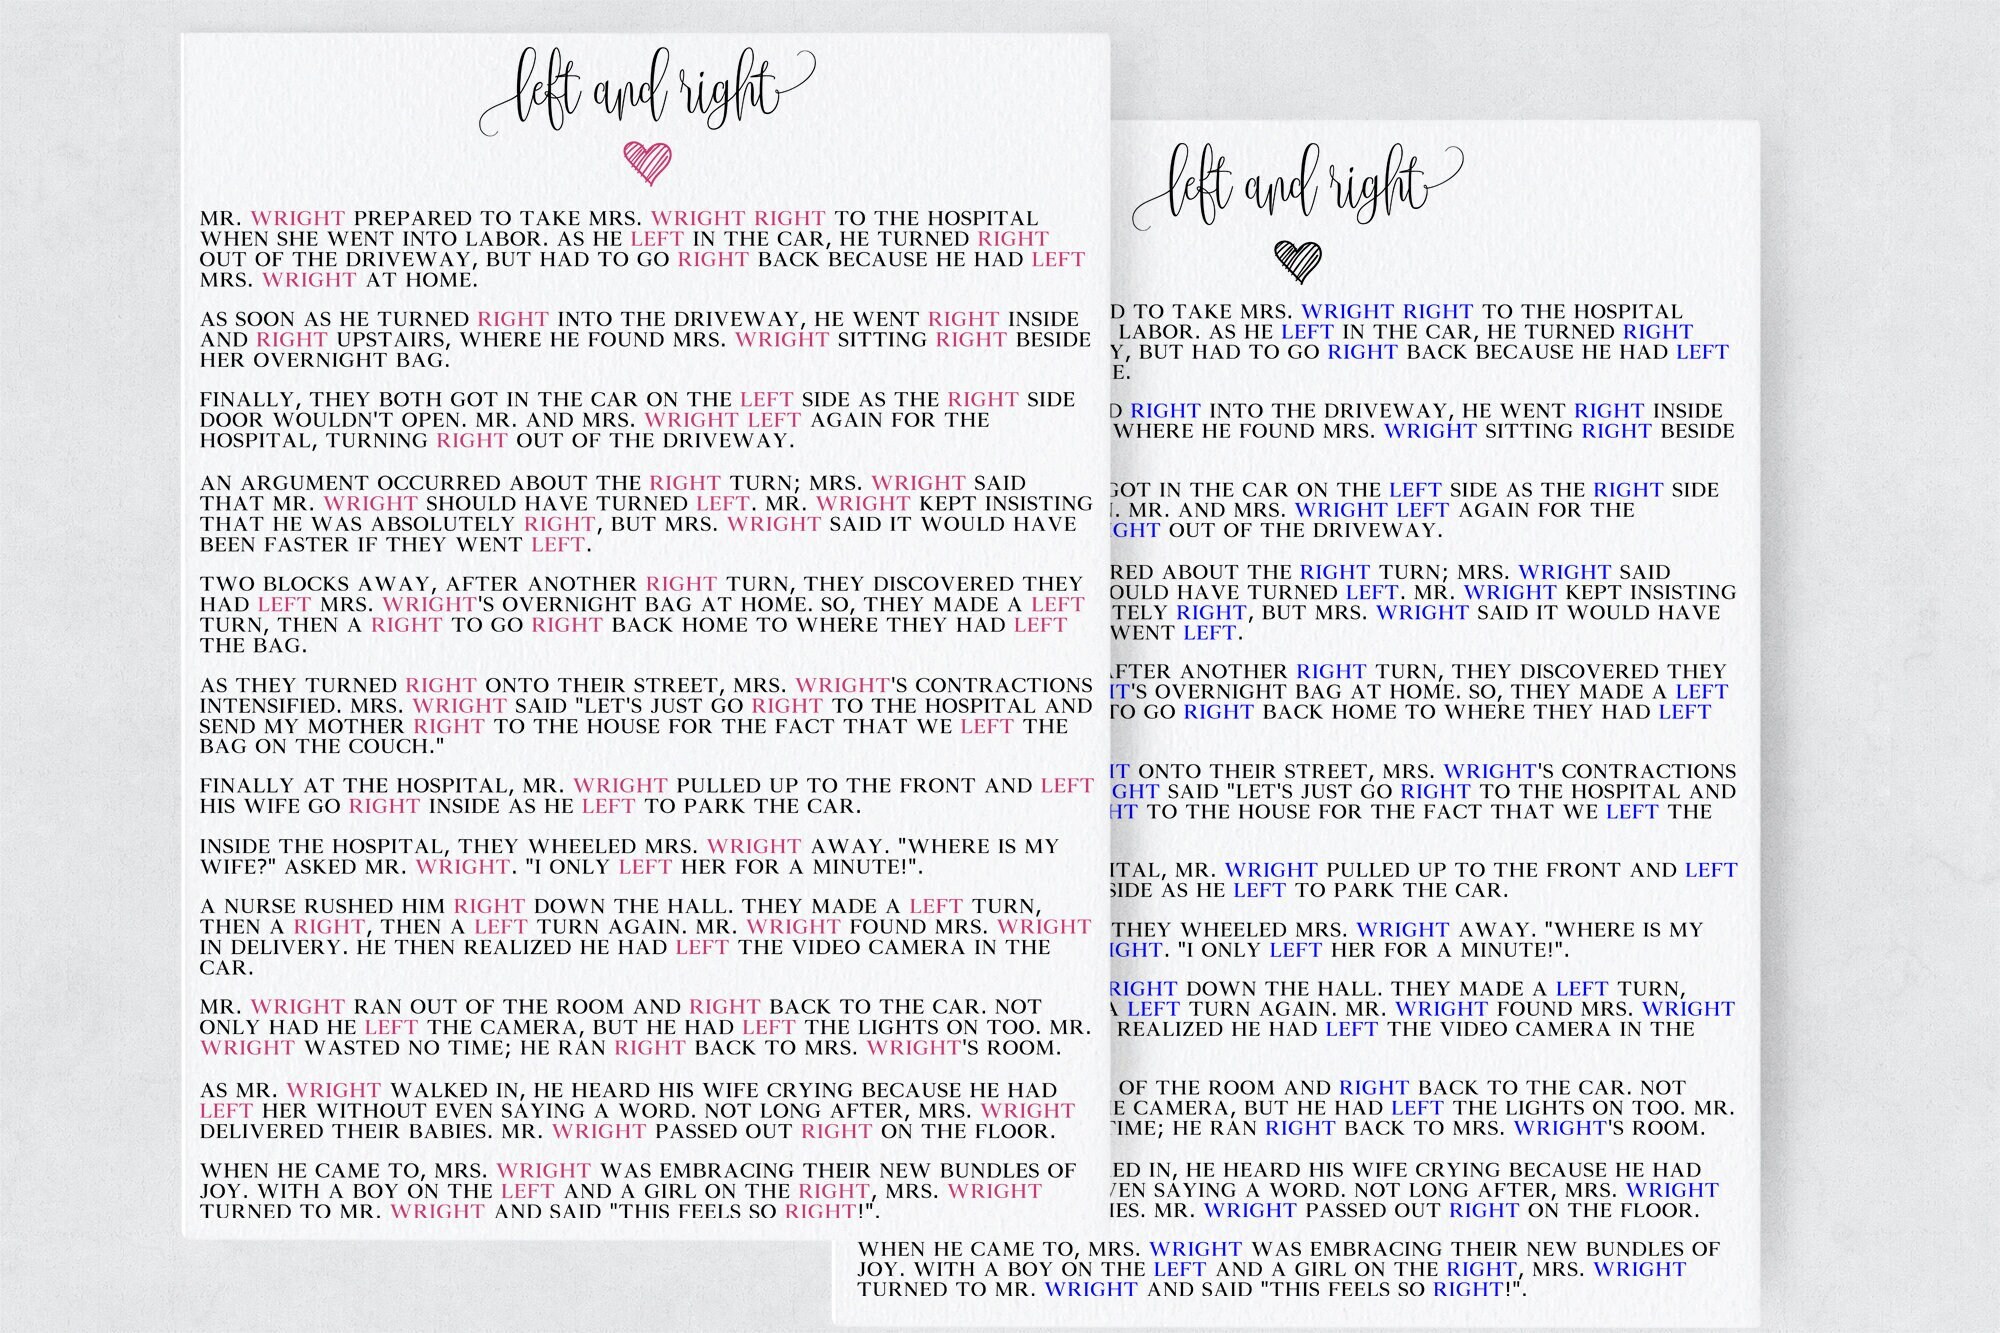 left and right
MR. WRIGHT PREPARED TO TAKE MRS. WRIGHT RIGHT TO THE HOSPITAL
WHEN SHE WENT INTO LABOR. AS HE LEFT IN THE CAR, HE TURNED RIGHT
OUT OF THE DRIVEWAY, BUT HAD TO GO RIGHT BACK BECAUSE HE HAD LEFT
MRS. WRIGHT AT HOME.
AS SOON AS HE TURNED RIGHT INTO THE DRIVEWAY, HE WENT RIGHT INSIDE
AND RIGHT UPSTAIRS, WHERE HE FOUND MRS. WRIGHT SITTING RIGHT BESIDE
HER OVERNIGHT BAG.
FINALLY, THEY BOTH GOT IN THE CAR ON THE LEFT SIDE AS THE RIGHT SIDE
DOOR WOULDN'T OPEN. MR. AND MRS. WRIGHT LEFT AGAIN FOR THE
HOSPITAL, TURNING RIGHT OUT OF THE DRIVEWAY.
AN ARGUMENT OCCURRED ABOUT THE RIGHT TURN; MRS. WRIGHT SAID
THAT MR. WRIGHT SHOULD HAVE TURNED LEFT. MR. WRIGHT KEPT INSISTING
THAT HE WAS ABSOLUTELY RIGHT, BUT MRS. WRIGHT SAID IT WOULD HAVE
BEEN FASTER IF THEY WENT LEFT.
TWO BLOCKS AWAY, AFTER ANOTHER RIGHT TURN, THEY DISCOVERED THEY
HAD LEFT MRS. WRIGHT'S OVERNIGHT BAG AT HOME. SO, THEY MADE A LEFT
TURN, THEN A RIGHT TO GO RIGHT BACK HOME TO WHERE THEY HAD LEFT
THE BAG.
AS THEY TURNED RIGHT ONTO THEIR STREET, MRS. WRIGHT'S CONTRACTIONS
INTENSIFIED. MRS. WRIGHT SAID "LET'S JUST GO RIGHT TO THE HOSPITAL AND
SEND MY MOTHER RIGHT TO THE HOUSE FOR THE FACT THAT WE LEFT THE
BAG ON THE COUCH."
FINALLY AT THE HOSPITAL, MR. WRIGHT PULLED UP TO THE FRONT AND LEFT
HIS WIFE GO RIGHT INSIDE AS HE LEFT TO PARK THE CAR.
INSIDE THE HOSPITAL, THEY WHEELED MRS. WRIGHT AWAY. "WHERE IS MY
WIFE?" ASKED MR. WRIGHT. "I ONLY LEFT HER FOR A MINUTE!".
A NURSE RUSHED HIM RIGHT DOWN THE HALL. THEY MADE A LEFT TURN,
THEN A RIGHT, THEN A LEFT TURN AGAIN. MR. WRIGHT FOUND MRS. WRIGHT
IN DELIVERY. HE THEN REALIZED HE HAD LEFT THE VIDEO CAMERA IN THE
CAR.
MR. WRIGHT RAN OUT OF THE ROOM AND RIGHT BACK TO THE CAR. NOT
ONLY HAD HE LEFT THE CAMERA, BUT HE HAD LEFT THE LIGHTS ON TOO. MR.
WRIGHT WASTED NO TIME; HE RAN RIGHT BACK TO MRS. WRIGHT'S ROOM.
AS MR. WRIGHT WALKED IN, HE HEARD HIS WIFE CRYING BECAUSE HE HAD
LEFT HER WITHOUT EVEN SAYING A WORD. NOT LONG AFTER, MRS. WRIGHT
DELIVERED THEIR BABIES. MR. WRIGHT PASSED OUT RIGHT ON THE FLOOR.
WHEN HE CAME TO, MRS. WRIGHT WAS EMBRACING THEIR NEW BUNDLES OF
JOY. WITH A BOY ON THE LEFT AND A GIRL ON THE RIGHT, MRS. WRIGHT
TURNED TO MR. WRIGHT AND SAID "THIS FEELS SO RIGHT!".
left and right
TO TAKE MRS. WRIGHT RIGHT TO THE HOSPITAL
LABOR. AS HE LEFT IN THE CAR, HE TURNED RIGHT
BUT HAD TO GO RIGHT BACK BECAUSE HE HAD LEFT
RIGHT INTO THE DRIVEWAY, HE WENT RIGHT INSIDE
WHERE HE FOUND MRS. WRIGHT SITTING RIGHT BESIDE
GOT IN THE CAR ON THE LEFT SIDE AS THE RIGHT SIDE
MR. AND MRS. WRIGHT LEFT AGAIN FOR THE
OUT OF THE DRIVEWAY.
ABOUT THE RIGHT TURN; MRS. WRIGHT SAID
HAVE TURNED LEFT. MR. WRIGHT KEPT INSISTING
RIGHT, BUT MRS. WRIGHT SAID IT WOULD HAVE
WENT LEFT.
AFTER ANOTHER RIGHT TURN, THEY DISCOVERED THEY
OVERNIGHT BAG AT HOME. SO, THEY MADE A LEFT
TO GO RIGHT BACK HOME TO WHERE THEY HAD LEFT
ONTO THEIR STREET, MRS. WRIGHT'S CONTRACTIONS
SAID "LET'S JUST GO RIGHT TO THE HOSPITAL AND
TO THE HOUSE FOR THE FACT THAT WE LEFT THE
MR. WRIGHT PULLED UP TO THE FRONT AND LEFT
AS HE LEFT TO PARK THE CAR.
THEY WHEELED MRS. WRIGHT AWAY. "WHERE IS MY
"I ONLY LEFT HER FOR A MINUTE!".
RIGHT DOWN THE HALL. THEY MADE A LEFT TURN,
A LEFT TURN AGAIN. MR. WRIGHT FOUND MRS. WRIGHT
REALIZED HE HAD LEFT THE VIDEO CAMERA IN THE
OF THE ROOM AND RIGHT BACK TO THE CAR. NOT
CAMERA, BUT HE HAD LEFT THE LIGHTS ON TOO. MR.
HE RAN RIGHT BACK TO MRS. WRIGHT'S ROOM.
IN, HE HEARD HIS WIFE CRYING BECAUSE HE HAD
SAYING A WORD. NOT LONG AFTER, MRS. WRIGHT
MR. WRIGHT PASSED OUT RIGHT ON THE FLOOR.
WHEN HE CAME TO, MRS. WRIGHT WAS EMBRACING THEIR NEW BUNDLES OF
JOY. WITH A BOY ON THE LEFT AND A GIRL ON THE RIGHT, MRS. WRIGHT
TURNED TO MR. WRIGHT AND SAID "THIS FEELS SO RIGHT!".